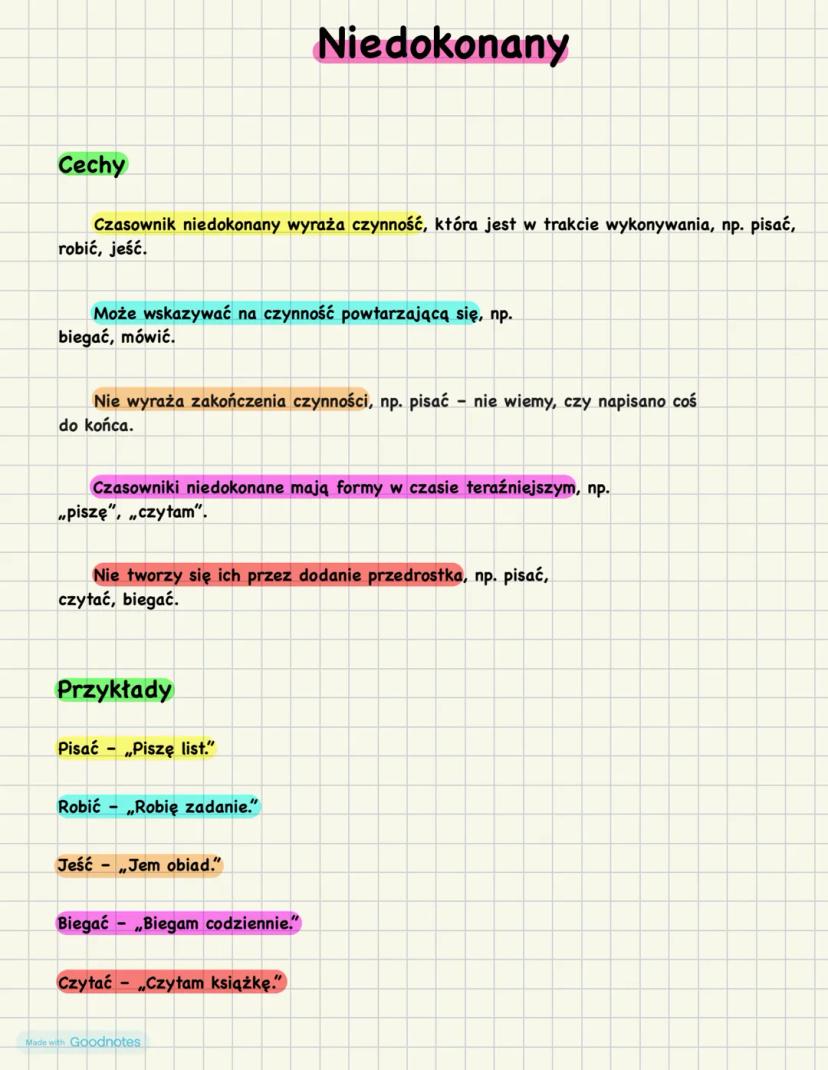 Niedokonany
Cechy
Czasownik niedokonany wyraża czynność, która jest w trakcie wykonywania, np. pisać,
robić, jeść.
Może wskazywać na czynność powtarzającą się, np.
biegać, mówić.
Nie wyraża zakończenia czynności, np. pisać – nie wiemy, czy napisano coś
do końca.
Czasowniki niedokonane mają formy w czasie teraźniejszym, np.
„piszę”, „czytam”.
Nie tworzy się ich przez dodanie przedrostka, np. pisać,
czytać, biegać.
Przykłady
Pisać – „Piszę list.”
Robić – „Robię zadanie.”
Jeść – „Jem obiad.”
Biegać – „Biegam codziennie.”
Czytać – „Czytam książkę.”
Made with Goodnotes